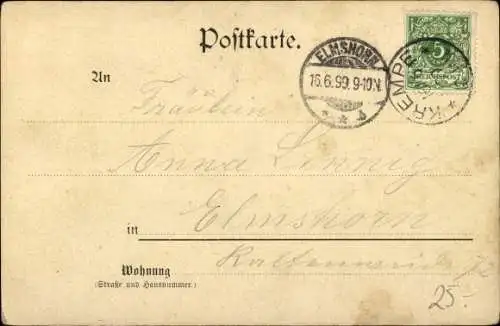 Postkarte.
ELMSHORN
16.6.99. 9-10N.
KREMPE
5
REICHSPOST
An
Fräulein
Anna Linnig
in Elmshorn
Wohnung
(Straße und Hausnummer)
25.-